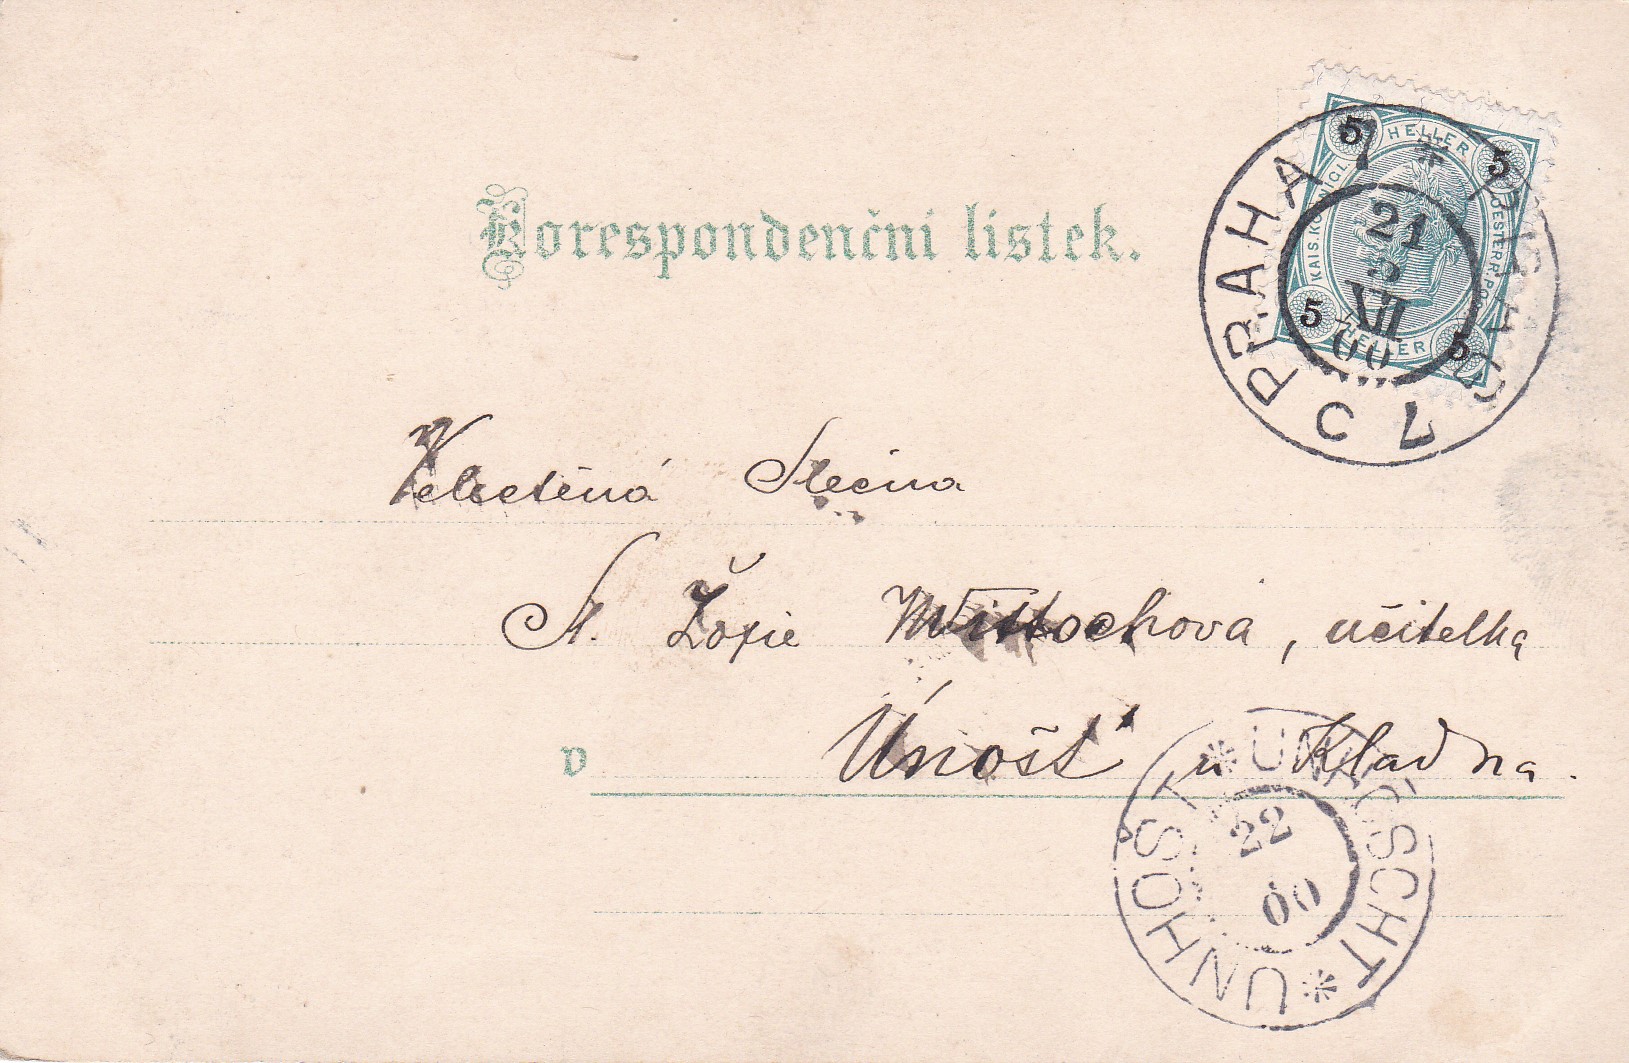 Korespondenční lístek.
5 HELLER 5
KAIS. KÖNIGL. OESTERR. PO
5 HELLER 5
PRAHA 7 * PRAG 7 C
21
XII
00
Velectěná Slečna
Sl. Žofie Wittochova, učitelka
v Únošť u Kladna.
* UNHOSCHT * UNHOŠŤ
22
00